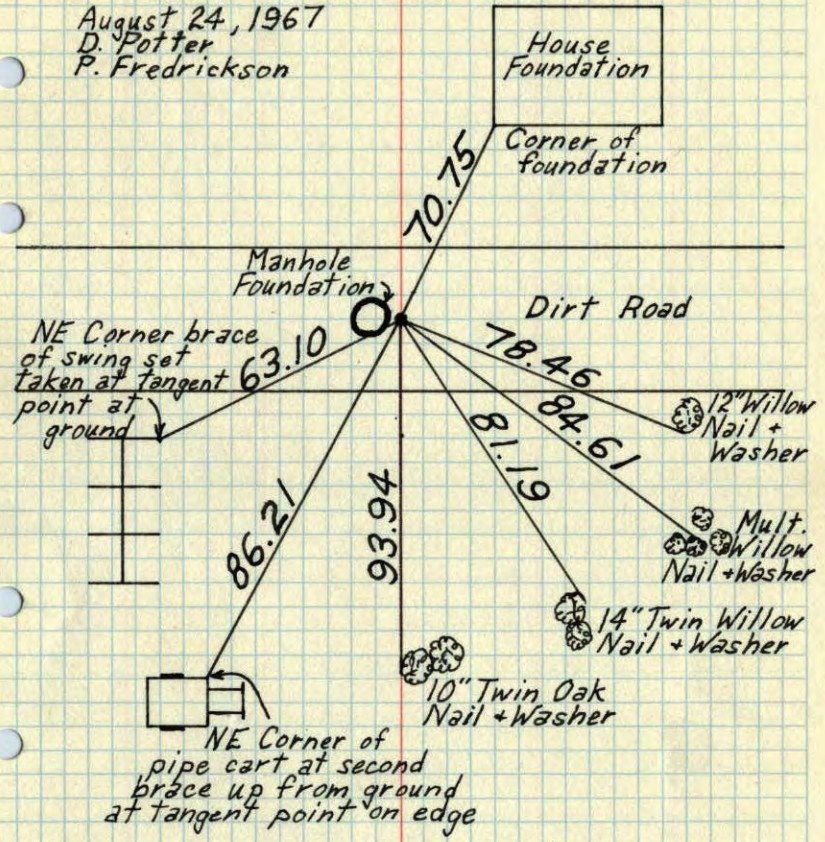 August 24, 1967
D. Potter
P. Fredrickson
House
Foundation
Corner of
foundation
70.75
Manhole
Foundation
Dirt Road
NE Corner brace
of swing set
taken at tangent
point at
ground
63.10
78.46
84.61
81.19
93.94
86.21
12" Willow
Nail +
Washer
Mult.
Willow
Nail + Washer
14" Twin Willow
Nail + Washer
10" Twin Oak
Nail + Washer
NE Corner of
pipe cart at second
brace up from ground
at tangent point on edge